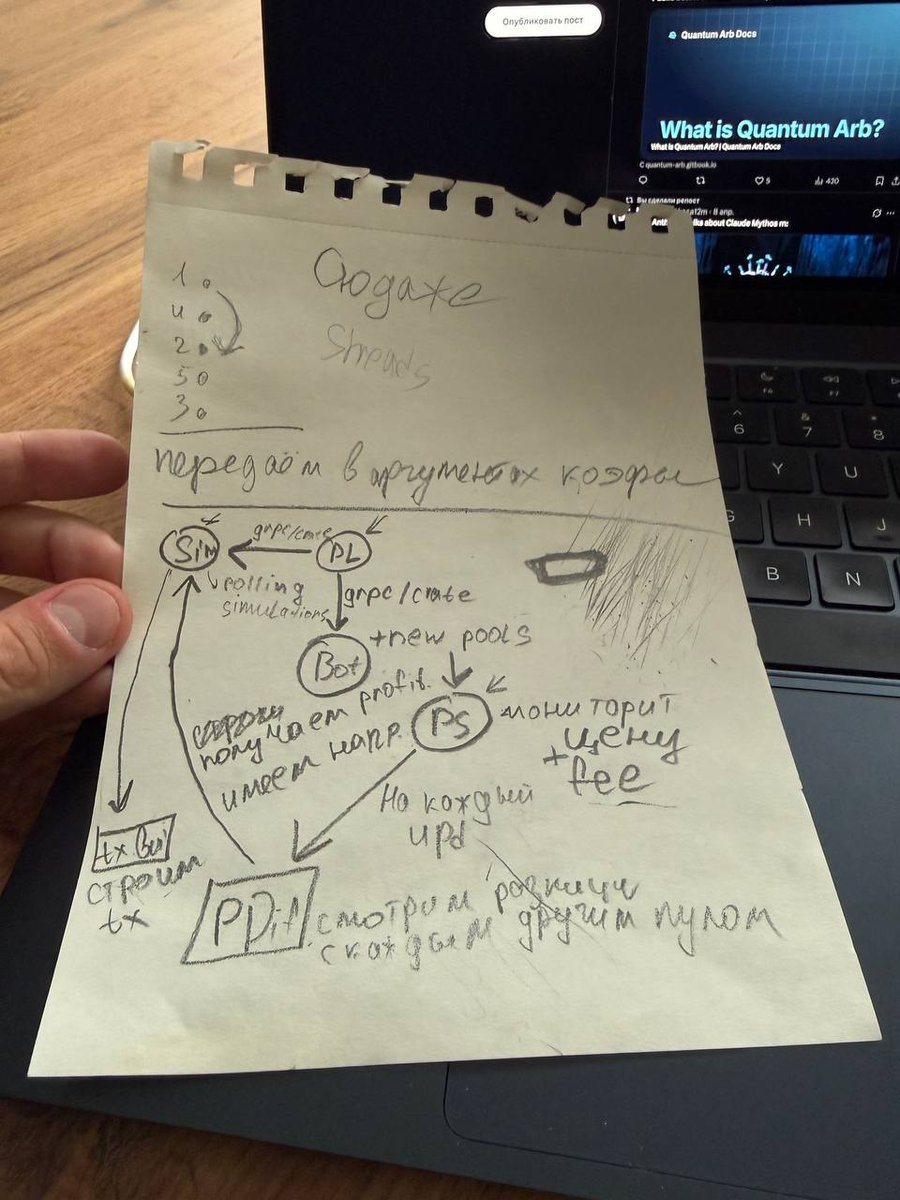 Опубликовать пост
Quantum Arb Docs
What is Quantum Arb?
What is Quantum Arb? | Quantum Arb Docs
quantum-arb.gitbook.io
5
430
Вы сделали репост
8 апр.
about Claude Mythos
1
4
2
5
3
Сюда же
передаём в аргументах коэфы
Sim
grpc/crate
PL
polling
simulations
grpc/crate
Bot
+new pools
получаем profit.
имеем напр.
PS
мониторит
цену
+
fee
На каждый
upd
tx
строим
tx
PDif
смотрим разницу
с каждым другим пулом
F7
F8
6
7
8
Y
U
G
H
J
B
N